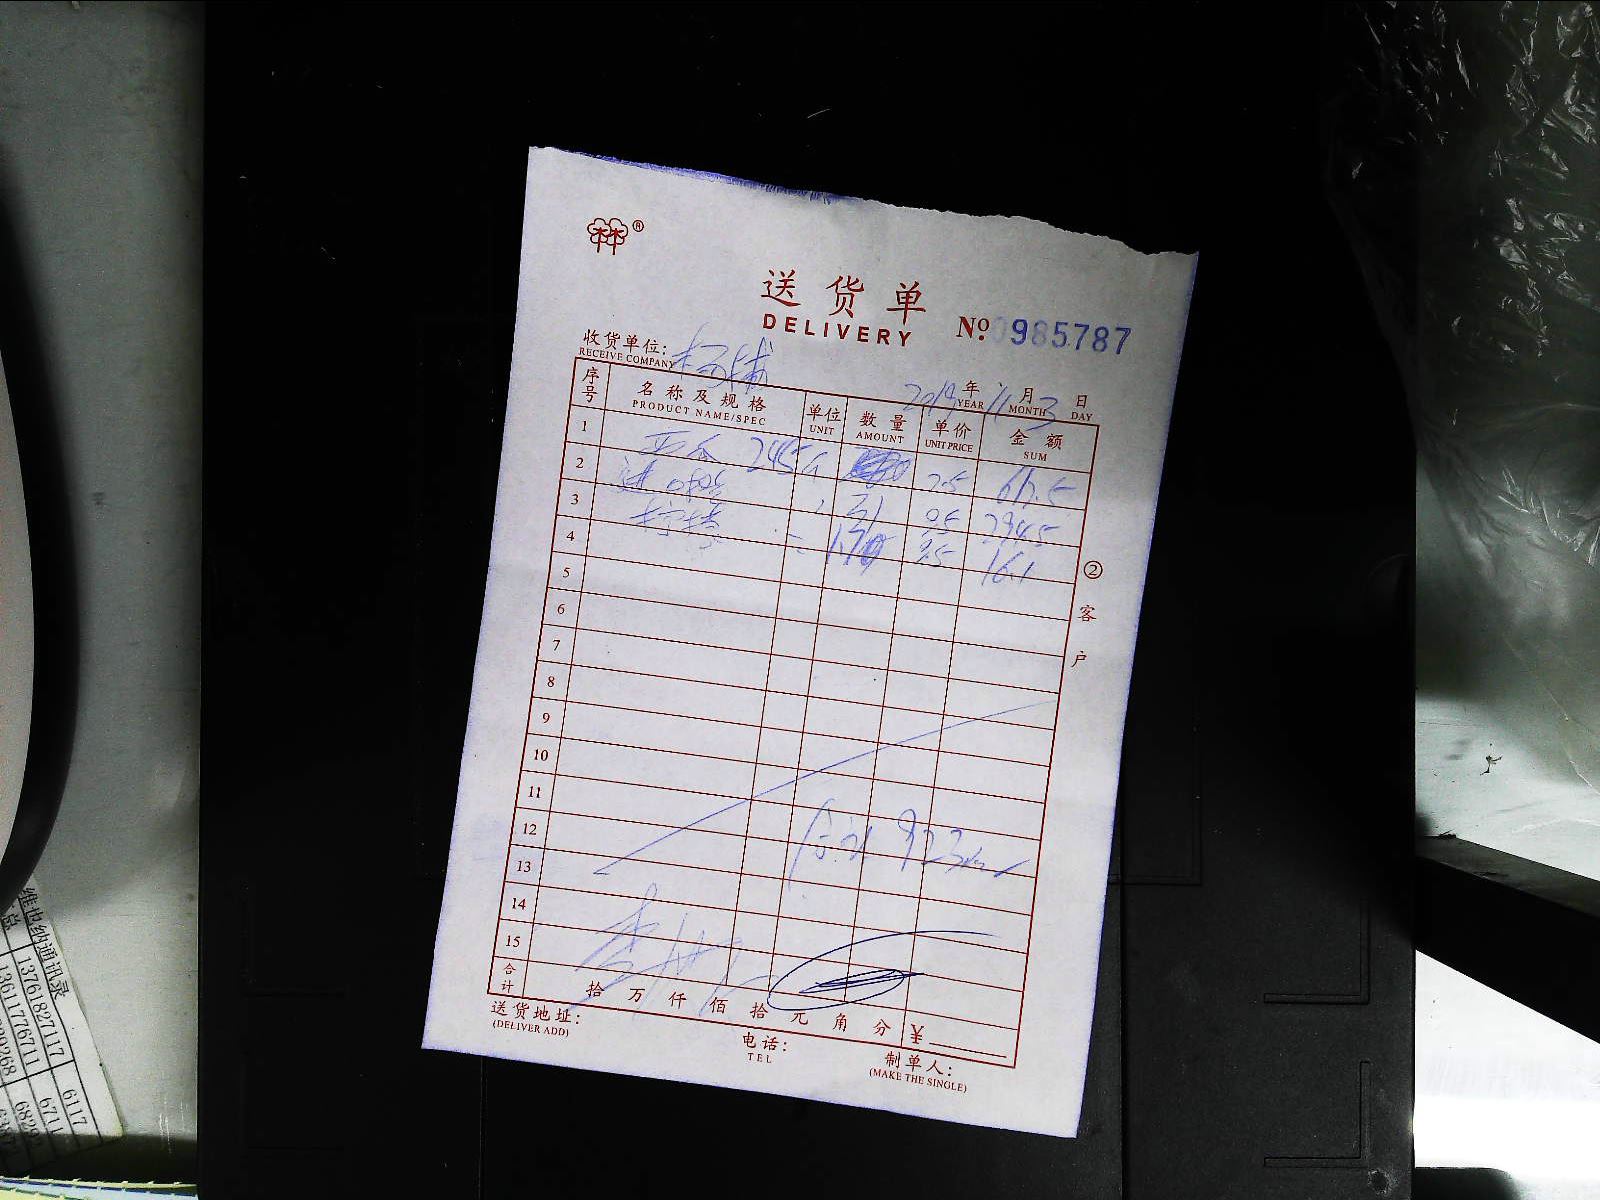 ®
送货单
DELIVERY
№ 0985787
收货单位: 杨城
RECEIVE COMPANY
2019年 11月 3日
YEAR MONTH DAY
序号 名称及规格 单位 数量 单价 金额
PRODUCT NAME/SPEC UNIT AMOUNT UNIT PRICE SUM
1
2 245 2.5 612.5
3 31 9.5 294.5
4 1.70 9.5 16.1
5
6
7
8
9
10
11
12 合计 923
13
14
15
合计 拾 万 仟 佰 拾 元 角 分 ¥
②客户
送货地址:
(DELIVER ADD)
电话:
TEL
制单人:
(MAKE THE SINGLE)
维也纳通讯录
总
13761827117 6117
13611776711 6711
39268 68292